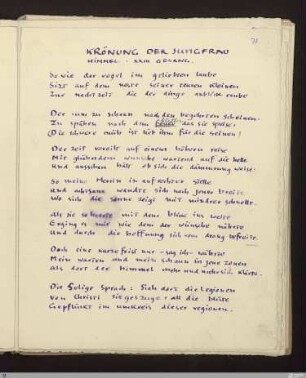 31
KRÖNUNG DER JUNGFRAU
HIMMEL · XXIII GESANG.
So wie der vogel im geliebten laube
Sizt auf dem neste seiner teuren kleinen
Zur nachtzeit die der dinge anblick raube
Der · um zu schaun nach den begehrten scheinen
Zu spähen nach dem das sie speise :
Die schwere müh ist lieb ihm für die seinen!
Der zeit voreilt auf einem höhren reise
Mit glühendem wunsche wartend auf die helle
Und ansehen hält ob sich die dämmrung weise:
So meine Herrin in aufrechter stelle
Und aufmerksam wandte sich nach jener
Wo sich die sonne zeigt mit mindrer schnelle.
Als sie so harrte mit dem blick ins weite
Erging es mir wie dem der wünsche nährte
Und durch die hoffnung sich vom drang befreite.
Doch eine kurze frist nur - sag ich - währte
Mein warten und mein schaun in jene zonen
Als dort der Himmel mehr und mehr sich klärte.
Die Selige sprach : Sieh dort die legionen
Von Christi siegeszuge : all die blüte
Gepflückt im umkreis dieser regionen.